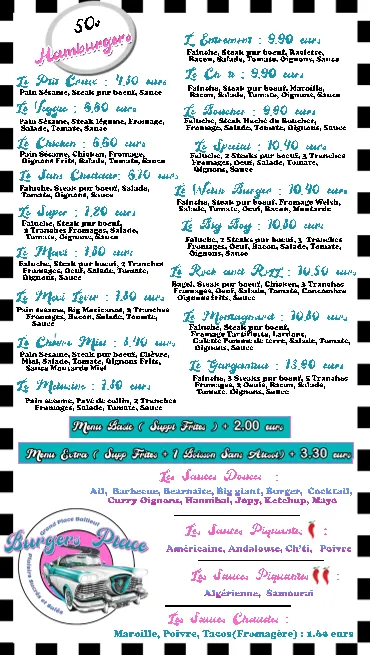 50s
Hamburgers
Le Ptit Creux : 4,50 eurs
Pain Sésame, Steak pur boeuf, Sauce
Le Veggie : 6,60 eurs
Pain Sésame, Steak légume, Fromage,
Salade, Tomate, Sauce
Le Chicken : 6,60 eurs
Pain Sésame, Chicken, Fromage,
Oignons Frits, Salade, Tomate, Sauce
Le Sans Cheddar:
Faluche, Steak pur boeuf, Salade,
Tomate, Oignons, Sauce
Le Super :
Faluche, Steak pur boeuf,
2 Tranches Fromages, Salade,
Tomate, Oignons, Sauce
Le Maxi :
Faluche, Steak pur boeuf, 2 Tranches
Fromages, Oeuf, Salade, Tomate,
Oignons, Sauce
Le Maxi Lover :
Pain sésame, Big Mexicanos, 2 Tranches
Fromages, Bacon, Salade, Tomate,
Sauce
Le Chèvre Miel :
Pain Sésame, Steak pur boeuf, Chèvre,
Miel, Salade, Tomate, Oignons Frits,
Sauce Moutarde Miel
Le
Pain sésame, Pavé de colin, 2 Tranches
Fromages, Salade, Tomate, Sauce
: 9,90 eurs
Faluche, Steak pur boeuf, Raclette,
Bacon, Salade, Tomate, Oignons, Sauce
Le Ch'ti : 9,90 eurs
Faluche, Steak pur boeuf, Maroille,
Bacon, Salade, Tomate, Oignons, Sauce
Le Boucher : 9,90 eurs
Faluche, Steak Haché du Boucher,
Fromage, Salade, Tomate, Oignons, Sauce
Le Special : 10,40 eurs
Faluche, 2 Steaks pur boeuf, 3 Tranches
Fromages, Oeuf, Salade, Tomate,
Oignons, Sauce
Le Welsh Burger : 10,40 eurs
Faluche, Steak pur boeuf, Fromage Welsh,
Salade, Tomate, Oeuf, Bacon, Moutarde
Le Big Boy : 10,50 eurs
Faluche, 2 Steaks pur boeuf, 3 Tranches
Fromages, Oeuf, Bacon, Salade, Tomate,
Oignons, Sauce
Le Rock and Roll : 10,50 eurs
Bagel, Steak pur boeuf, Chicken, 3 Tranches
Fromages, Oeuf, Salade, Tomate, Concombre
Oignons frits, Sauce
Le Montagnard : 10,80 eurs
Faluche, Steak pur boeuf,
Fromage Tartiflette, Lardons,
Galette Pomme de terre, Salade, Tomate,
Oignons, Sauce
Le Gargantua : 13,90 eurs
Faluche, 3 Steaks pur boeuf, 5 Tranches
Fromages, 2 Oeufs, Bacon, Salade,
Tomate, Oignons, Sauce
Menu Basic ( Suppt Frites ) + 2.00 eurs
Menu Extra ( Supp Frites + 1 Boisson Sans Alcool) + 3.30 eurs
Les Sauces Douces :
Ail, Barbecue, Bearnaise, Big giant, Burger, Cocktail,
Curry Oignons, Hannibal, Jopy, Ketchup, Mayo
Les Sauces Piquantes :
Américaine, Andalouse, Ch'ti, Poivre
Les Sauces Piquantes :
Algérienne, Samouraï
Les Sauces Chaudes :
Maroille, Poivre, Tacos(Fromagère) : 1.64 eurs
Grand Place Bailleul
Burgers Place